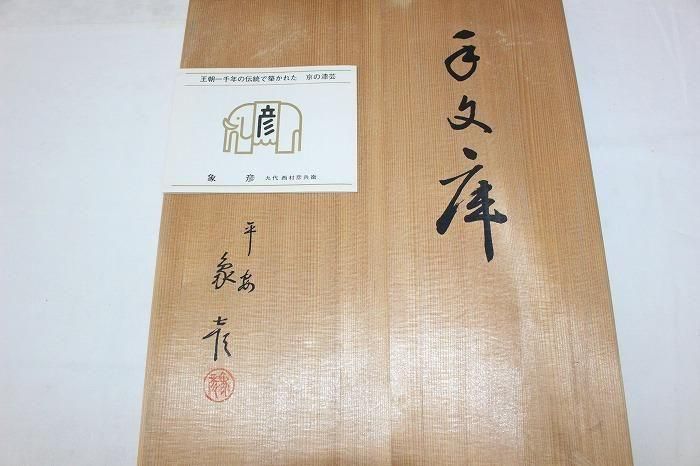 手文庫
王朝一千年の伝統で築かれた 京の漆芸
彦
象彦 九代 西村彦兵衛
平安
象彦